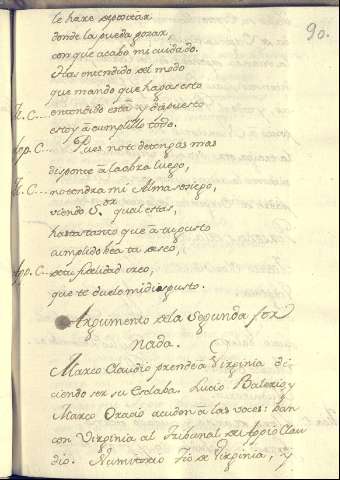 90.
le hare depositar
donde la pueda gozar,
con que acabo mi cuidado.
Has entendido del modo
que mando que hagas esto
M. C... entendido està, y dispuesto
estoy à cumplillo todo.
App. C... Pues no te detengas mas
disponte à la obra luego,
M. C... no tendra mi Alma sosiego,
viendo S.or qual estas,
hasta tanto que à tu gusto
cumplido sea tu deseo,
App. C... de tu fidelidad creo,
que te duele mi disgusto.
Argumento de la Segunda Jor
nada.
Marco Claudio prende à Virginia di
ciendo ser su Esclaba. Lucio Balerio, y
Marco Oracio acuden à las voces: ban
con Virginia al Tribunal de Appio Clau
dio. Numitorio Tio de Virginia, y